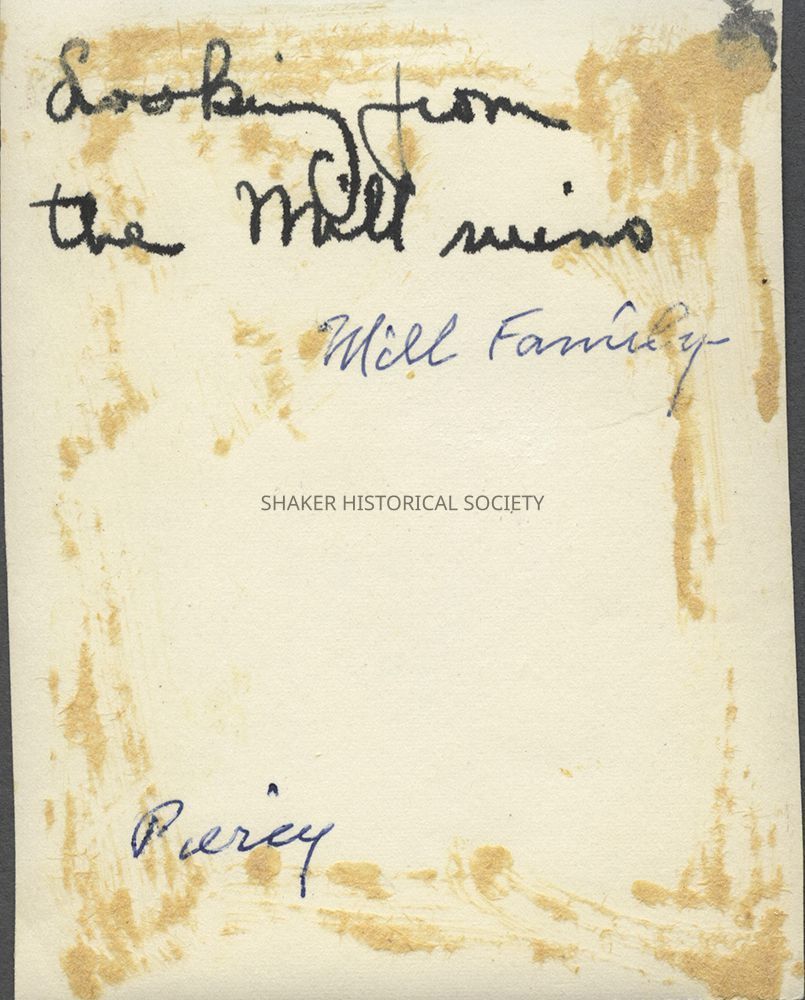 Looking from
the Mill ruins
Mill Family
SHAKER HISTORICAL SOCIETY
Piercy